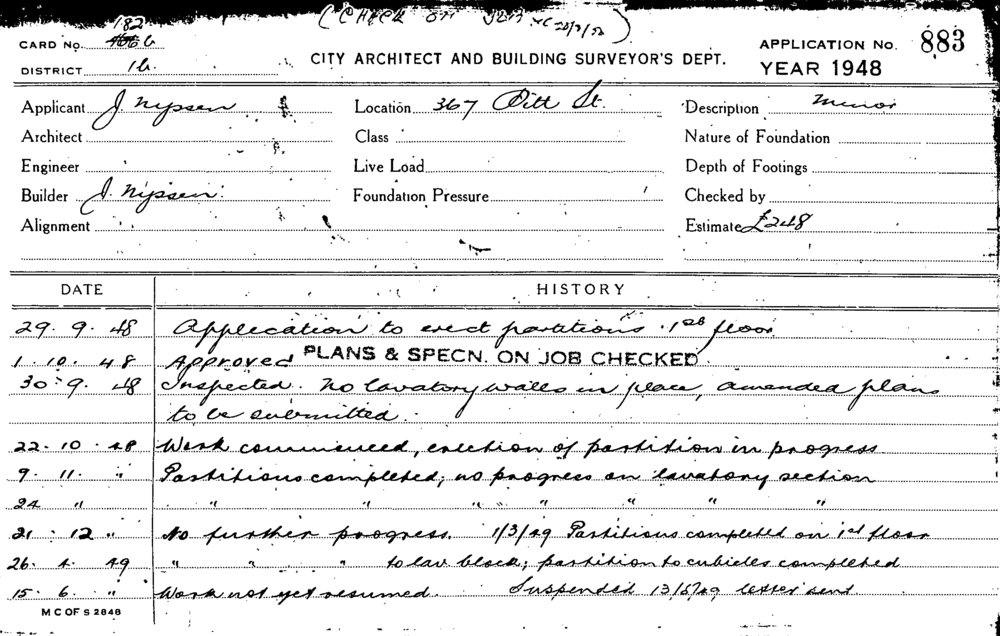 (CHECK ON JOB 20/9/50)
182
CARD No. 6
APPLICATION No. 883
CITY ARCHITECT AND BUILDING SURVEYOR'S DEPT.
DISTRICT 1b. YEAR 1948
Applicant J. Nypsen Location 367 Pitt St. Description Minor
Architect Class Nature of Foundation
Engineer Live Load Depth of Footings
Builder J. Nypsen. Foundation Pressure Checked by
Alignment Estimate £248
DATE HISTORY
29. 9. 48 Application to erect partitions 1st floor
1. 10. 48 Approved PLANS & SPECN. ON JOB CHECKED
30. 9. 48 Inspected. No lavatory walls in place, amended plans
to be submitted.
22. 10. 48 Work commenced, erection of partition in progress
9. 11. " Partitions completed; no progress on lavatory section
24 " " " " " " " "
21. 12 " No further progress. 1/3/49 Partitions completed on 1st floor
26. 4. 49 " " " to lav. block; partition to cubicles completed
15. 6. " Work not yet resumed. Suspended 13/5/49 letter sent.
M C OF S 2848